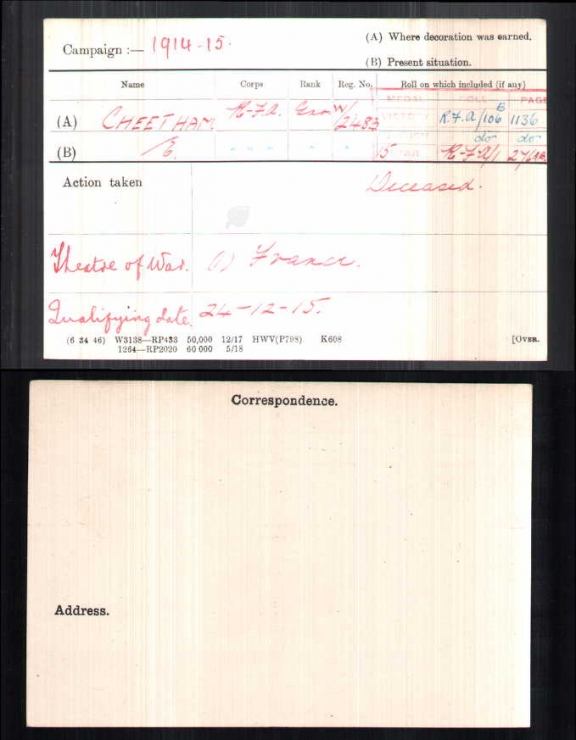 Campaign :— 1914-15.
(A) Where decoration was earned.
(B) Present situation.
Name Corps Rank Reg. No. Roll on which included (if any)
MEDAL ROLL PAGE
(A) CHEETHAM R.F.A. Gnr W/2483 VICTORY R.F.A/106 B 1136
do do
(B) E. " " " " 15 R.F.A/1
Action taken Deceased.
Theatre of War. (1) France.
Qualifying date. 24-12-15.
(6 34 46) W3138—RP433 50,000 12/17 HWV(P798) K608 [OVER.
1264—RP2020 60 000 5/18
Correspondence.
Address.